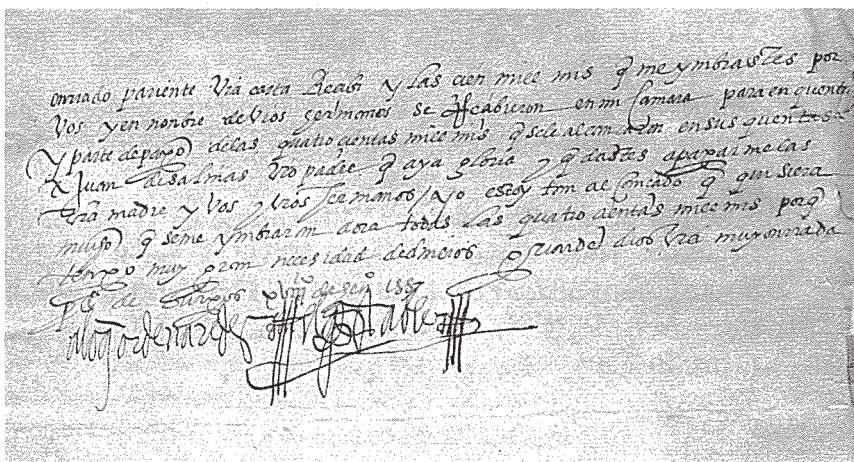 onrrado pariente vrã carta Recibi y las cien mill mrs q̃ me ymbiastes por
vos y en nonbre de vros hermanos se Recibieron en mi camara para en quenta
y parte de pago de las quatrocientas mill mrs q̃ se le alcançaron en sus quentas a
Juan de salinas vro padre q̃ aya gloria y q̃dastes a pagarmelas
vrã madre y vos y vros hermanos / yo estoy tan alcançado q̃ quisiera
mucho q̃ se me ymbiaran aora todas las quatrocientas mill mrs porq̃
tengo muy gran necesidad de dineros guarde dios vrã muy onrrada
pª de burgos xviij de 1557